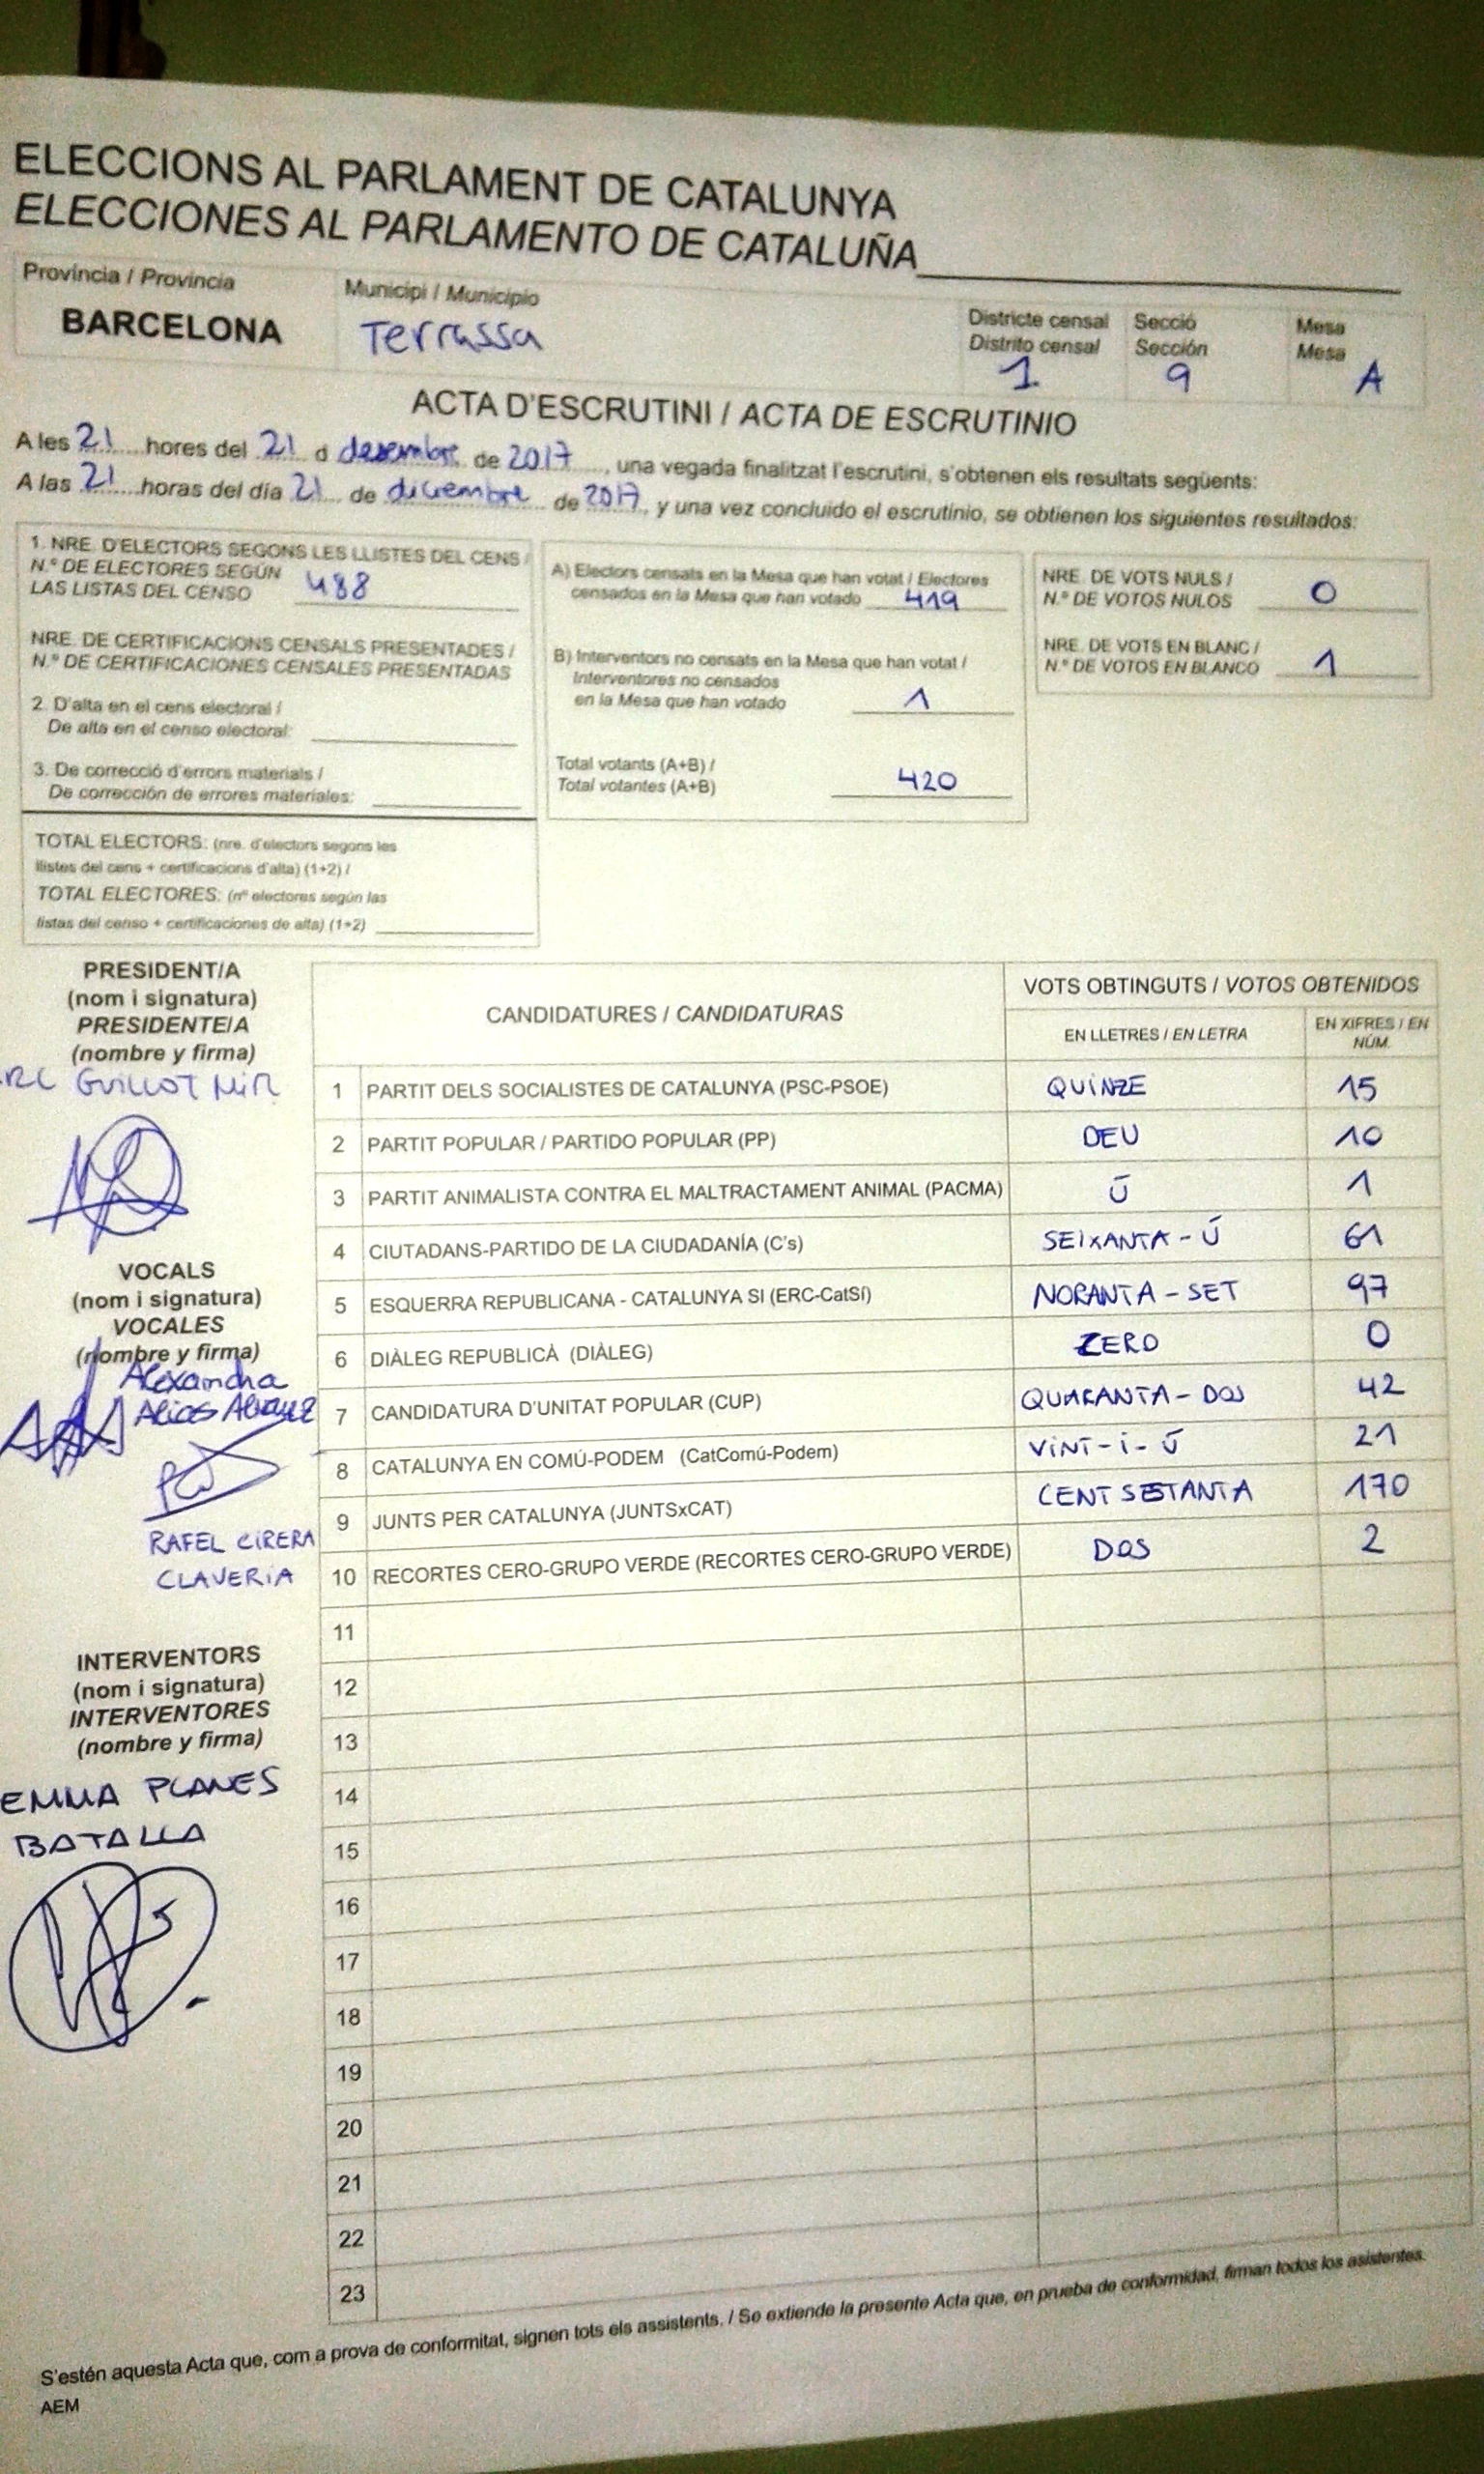 ELECCIONS AL PARLAMENT DE CATALUNYA
ELECCIONES AL PARLAMENTO DE CATALUÑA
Província / Provincia
BARCELONA
Municipi / Municipio
Terrassa
Districte censal
Distrito censal
1
Secció
Sección
9
Mesa
Mesa
A
ACTA D'ESCRUTINI / ACTA DE ESCRUTINIO
A les 21 hores del 21 d desembre de 2017, una vegada finalitzat l'escrutini, s'obtenen els resultats següents:
A las 21 horas del día 21 de diciembre de 2017, y una vez concluido el escrutinio, se obtienen los siguientes resultados:
1. NRE. D'ELECTORS SEGONS LES LLISTES DEL CENS /
N.º DE ELECTORES SEGÚN
LAS LISTAS DEL CENSO 488
NRE. DE CERTIFICACIONS CENSALS PRESENTADES /
N.º DE CERTIFICACIONES CENSALES PRESENTADAS
2. D'alta en el cens electoral /
De alta en el censo electoral:
3. De correcció d'errors materials /
De corrección de errores materiales:
TOTAL ELECTORS: (nre. d'electors segons les
llistes del cens + certificacions d'alta) (1+2) /
TOTAL ELECTORES: (nº electores según las
listas del censo + certificaciones de alta) (1+2)
A) Electors censats en la Mesa que han votat / Electores
censados en la Mesa que han votado 419
B) Interventors no censats en la Mesa que han votat /
Interventores no censados
en la Mesa que han votado 1
Total votants (A+B) /
Total votantes (A+B) 420
NRE. DE VOTS NULS /
N.º DE VOTOS NULOS 0
NRE. DE VOTS EN BLANC /
N.º DE VOTOS EN BLANCO 1
PRESIDENT/A
(nom i signatura)
PRESIDENTE/A
(nombre y firma)
GUILLOT MIR
VOCALS
(nom i signatura)
VOCALES
(nombre y firma)
Alexandra
RAFEL CIRERA
CLAVERIA
INTERVENTORS
(nom i signatura)
INTERVENTORES
(nombre y firma)
EMMA PLANES
BATALLA
CANDIDATURES / CANDIDATURAS
VOTS OBTINGUTS / VOTOS OBTENIDOS
EN LLETRES / EN LETRA
EN XIFRES / EN
NÚM.
1 PARTIT DELS SOCIALISTES DE CATALUNYA (PSC-PSOE) QUINZE 15
2 PARTIT POPULAR / PARTIDO POPULAR (PP) DEU 10
3 PARTIT ANIMALISTA CONTRA EL MALTRACTAMENT ANIMAL (PACMA) Ú 1
4 CIUTADANS-PARTIDO DE LA CIUDADANÍA (C's) SEIXANTA - Ú 61
5 ESQUERRA REPUBLICANA - CATALUNYA SI (ERC-CatSí) NORANTA - SET 97
6 DIÀLEG REPUBLICÀ (DIÀLEG) ZERO 0
7 CANDIDATURA D'UNITAT POPULAR (CUP) QUARANTA - DOS 42
8 CATALUNYA EN COMÚ-PODEM (CatComú-Podem) VINT - I - Ú 21
9 JUNTS PER CATALUNYA (JUNTSxCAT) CENT SETANTA 170
10 RECORTES CERO-GRUPO VERDE (RECORTES CERO-GRUPO VERDE) DOS 2
11
12
13
14
15
16
17
18
19
20
21
22
23
S'estén aquesta Acta que, com a prova de conformitat, signen tots els assistents. / Se extiende la presente Acta que, en prueba de conformidad, firman todos los asistentes.
AEM